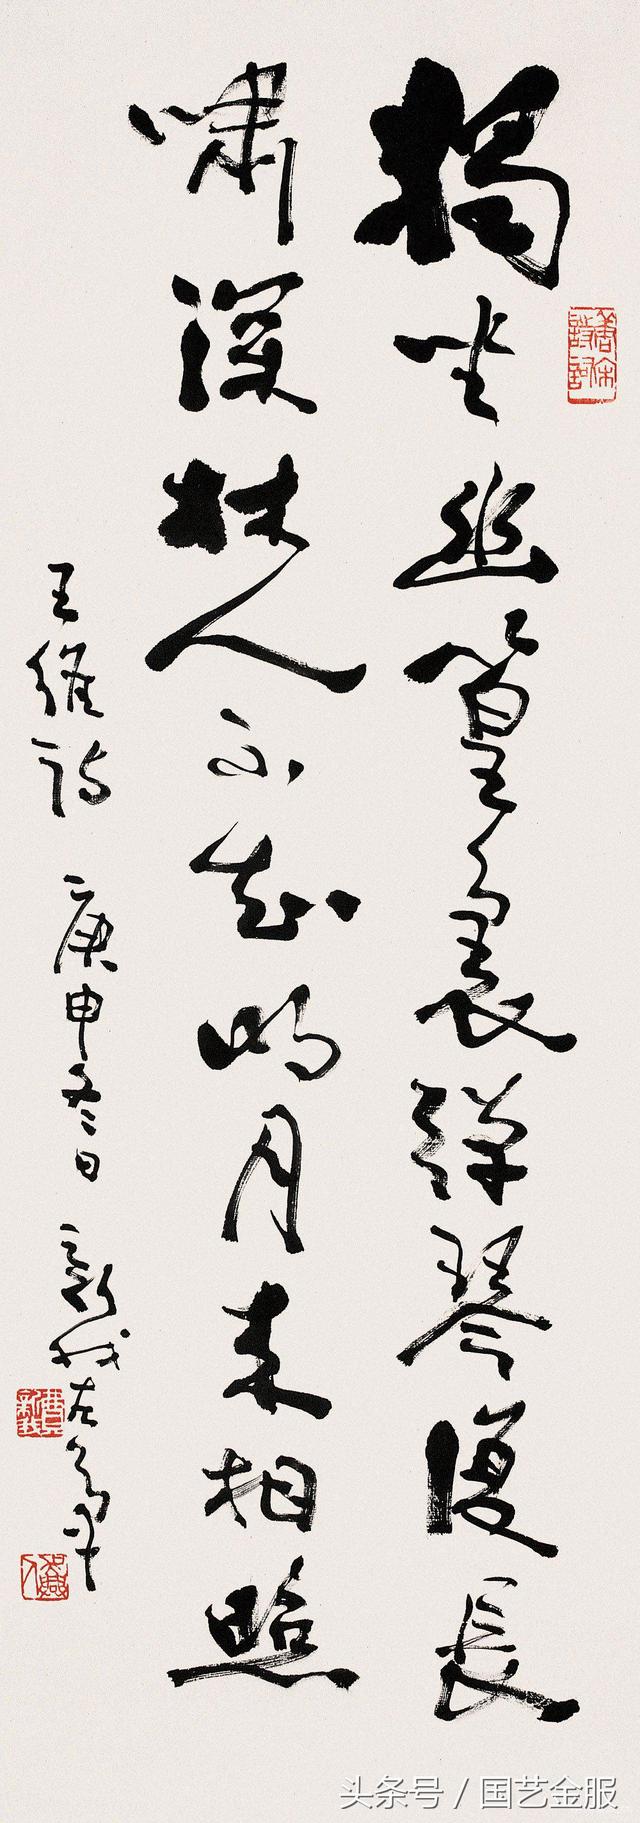 獨坐幽篁裏彈琴復長
嘯深林人不知明月來相照
王維詩 庚申冬日 新我左筆
头条号 / 国艺金服